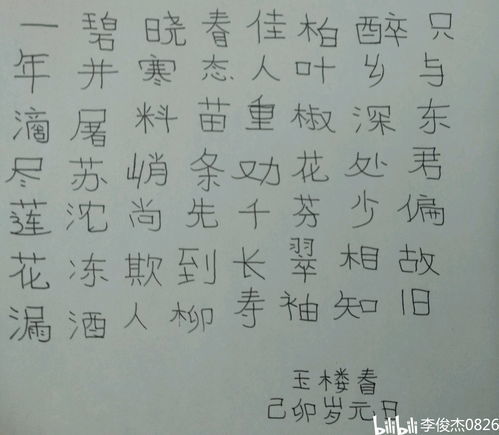 一年滴尽莲花漏
碧并屠苏沈冻酒
晓寒料峭尚欺人
春态苗条先到柳
佳人重劝千长寿
柏叶椒花芬翠袖
醉乡深处少相知
只与东君偏故旧
玉楼春
己卯岁元日
bilibili 李俊杰0826